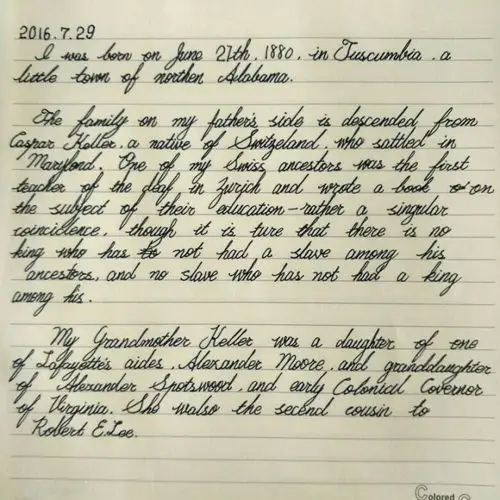 2016.7.29
I was born on June 27th, 1880, in Tuscumbia, a
little town of northen Alabama.
The family on my father's side is descended from
Caspar Keller, a native of Switzeland, who sattled in
Maryland. One of my Swiss ancestors was the first
teacher of the deaf in Zurich and wrote a book on
the subject of their education-rather a singular
coincidence, though it is ture that there is no
king who has not had a slave among his
ancestors, and no slave who has not had a king
among his.
My Grandmother Keller was a daughter of one
of Lafayette's aides, Alexander Moore, and granddaughter
of Alexander Spotswood, and early Colonial Covernor
of Virginia. She walso the second cousin to
Robert E.Lee.
Colored